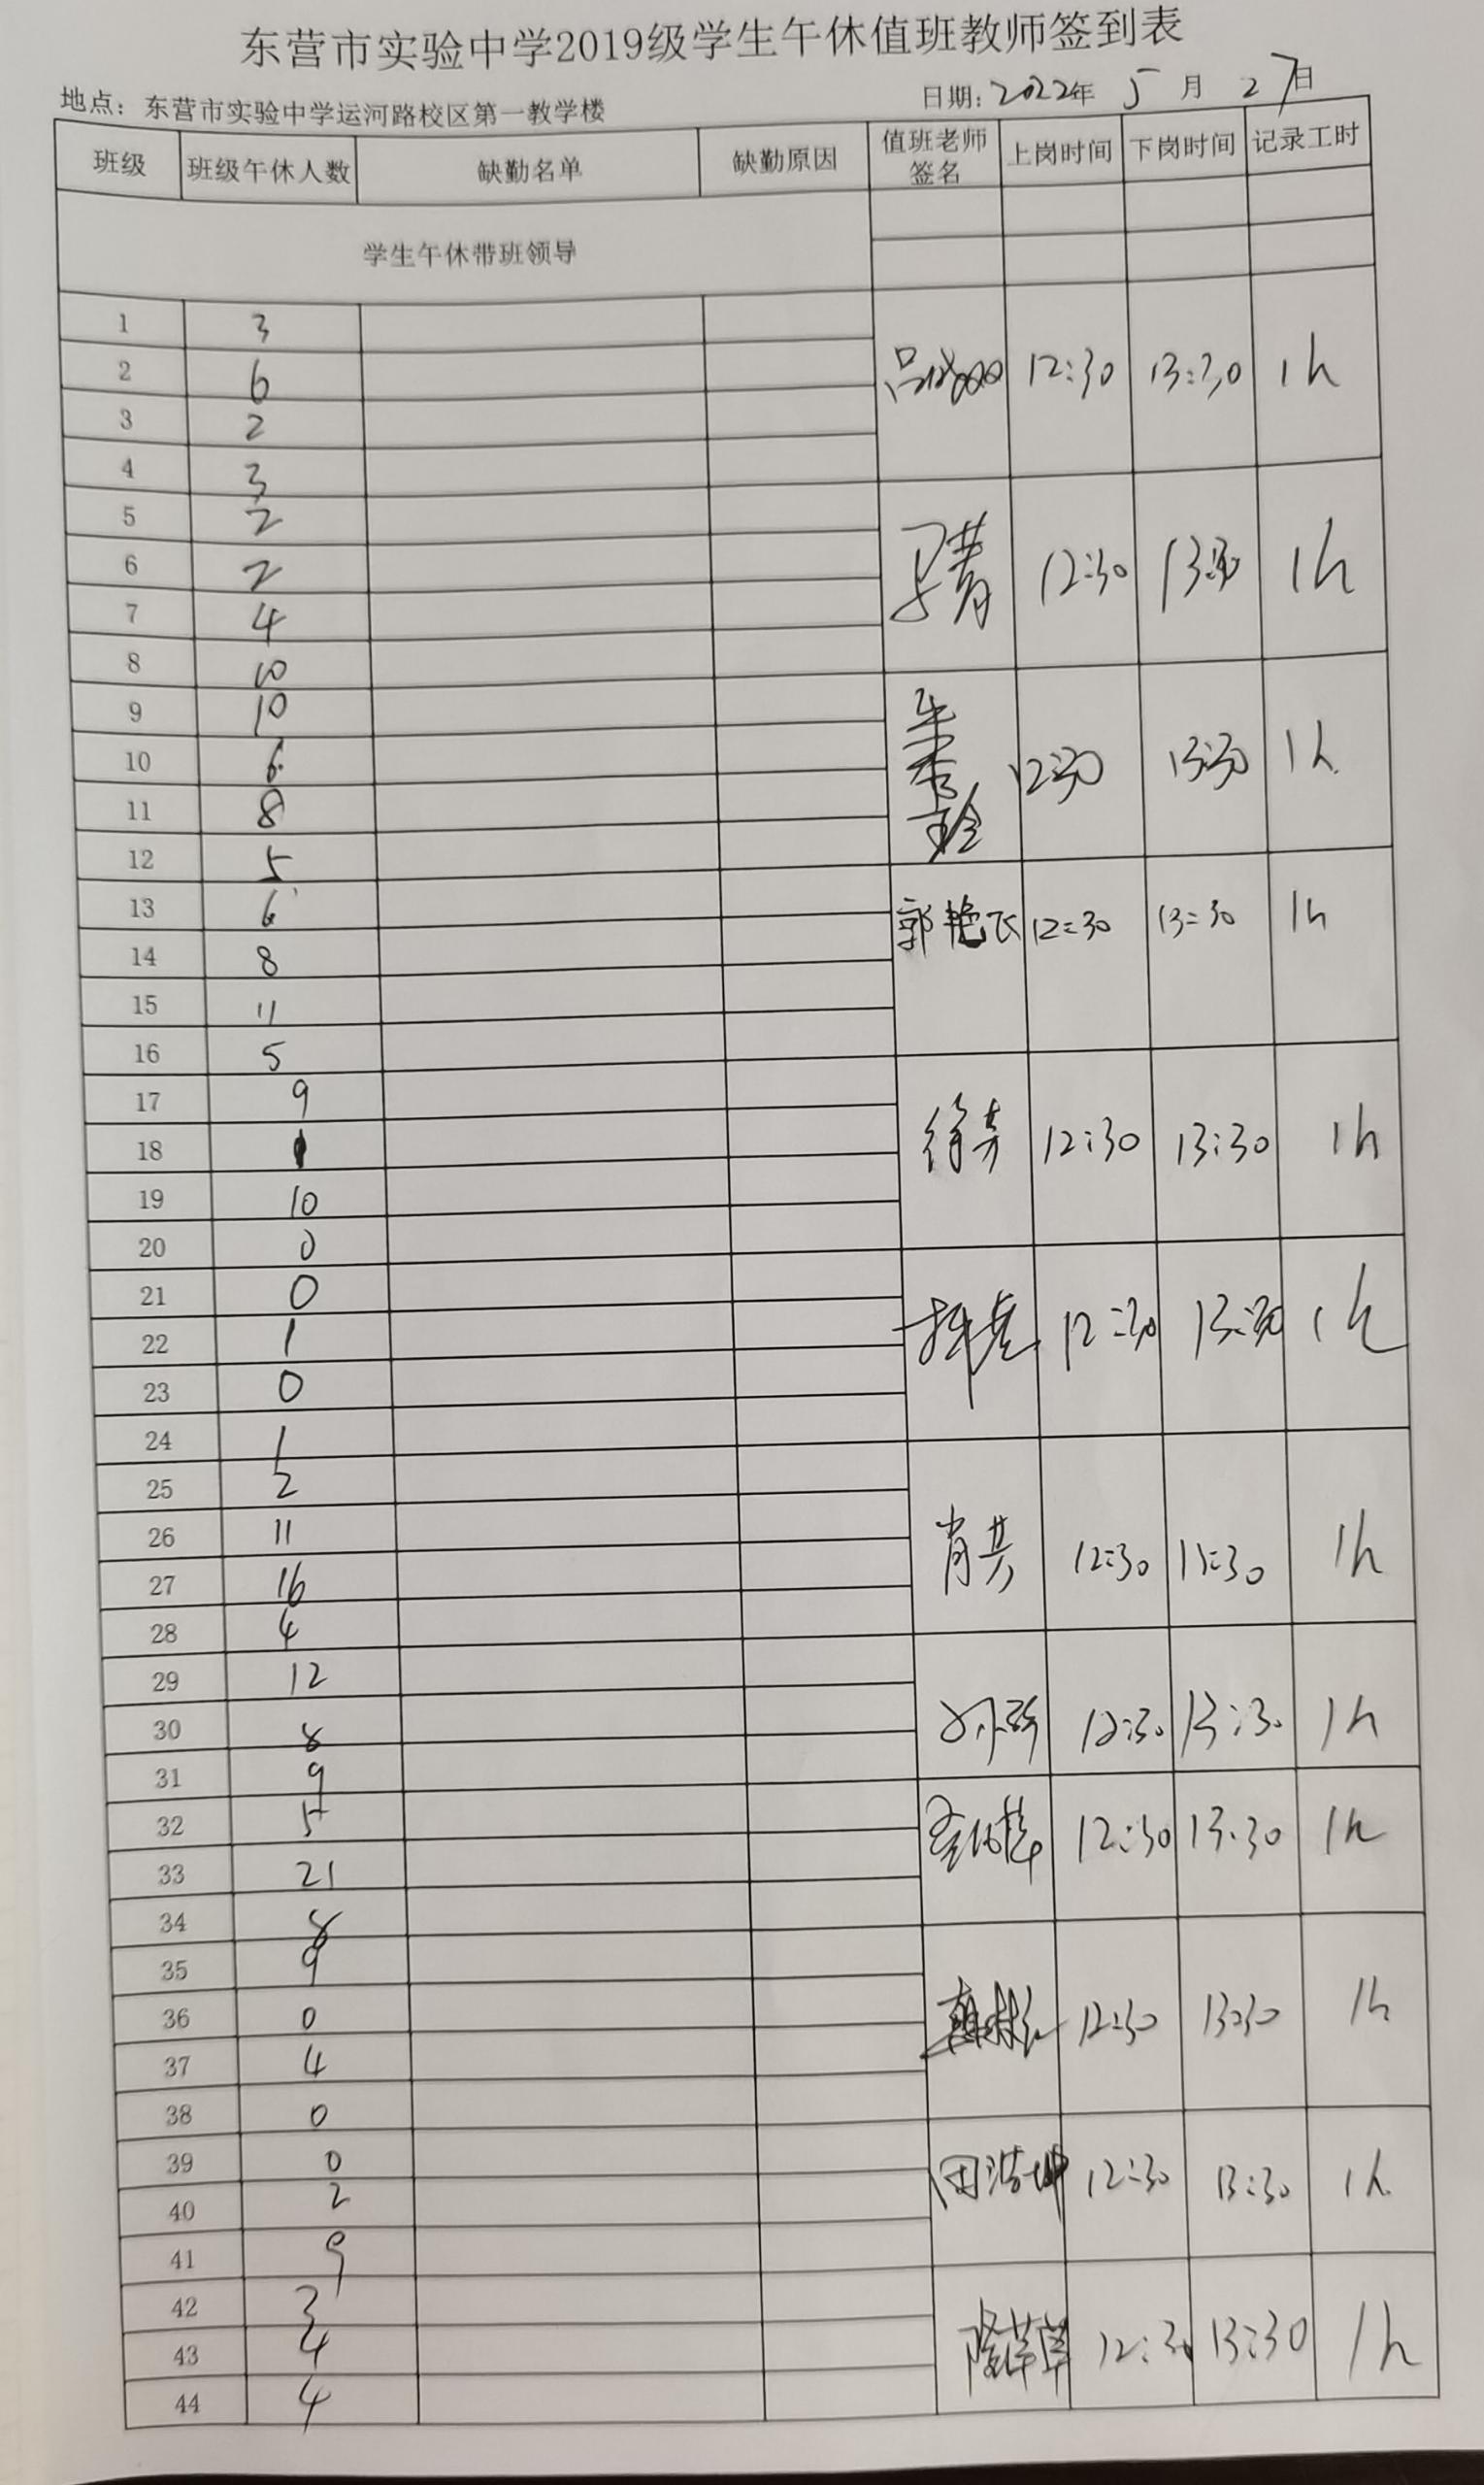 东营市实验中学2019级学生午休值班教师签到表
地点：东营市实验中学运河路校区第一教学楼 日期：2022年 5 月 27日
班级 班级午休人数 缺勤名单 缺勤原因 值班老师签名 上岗时间 下岗时间 记录工时
学生午休带班领导
1 3
2 6 12:30 13:30 1h
3 2
4 3
5 2
6 2 12:30 13:30 1h
7 4
8 10
9 10
10 6 12:30 13:30 1h
11 8
12 5
13 6 郭艳飞 12:30 13:30 1h
14 8
15 11
16 5
17 9
18 1 12:30 13:30 1h
19 10
20 0
21 0
22 1 12:30 13:30 1h
23 0
24 1
25 2
26 11
27 16 12:30 13:30 1h
28 4
29 12
30 8 12:30 13:30 1h
31 9
32 5 12:30 13:30 1h
33 21
34 8
35 9
36 0 12:30 13:30 1h
37 4
38 0
39 0 田浩坤 12:30 13:30 1h
40 2
41 9
42 3
43 4 12:30 13:30 1h
44 4